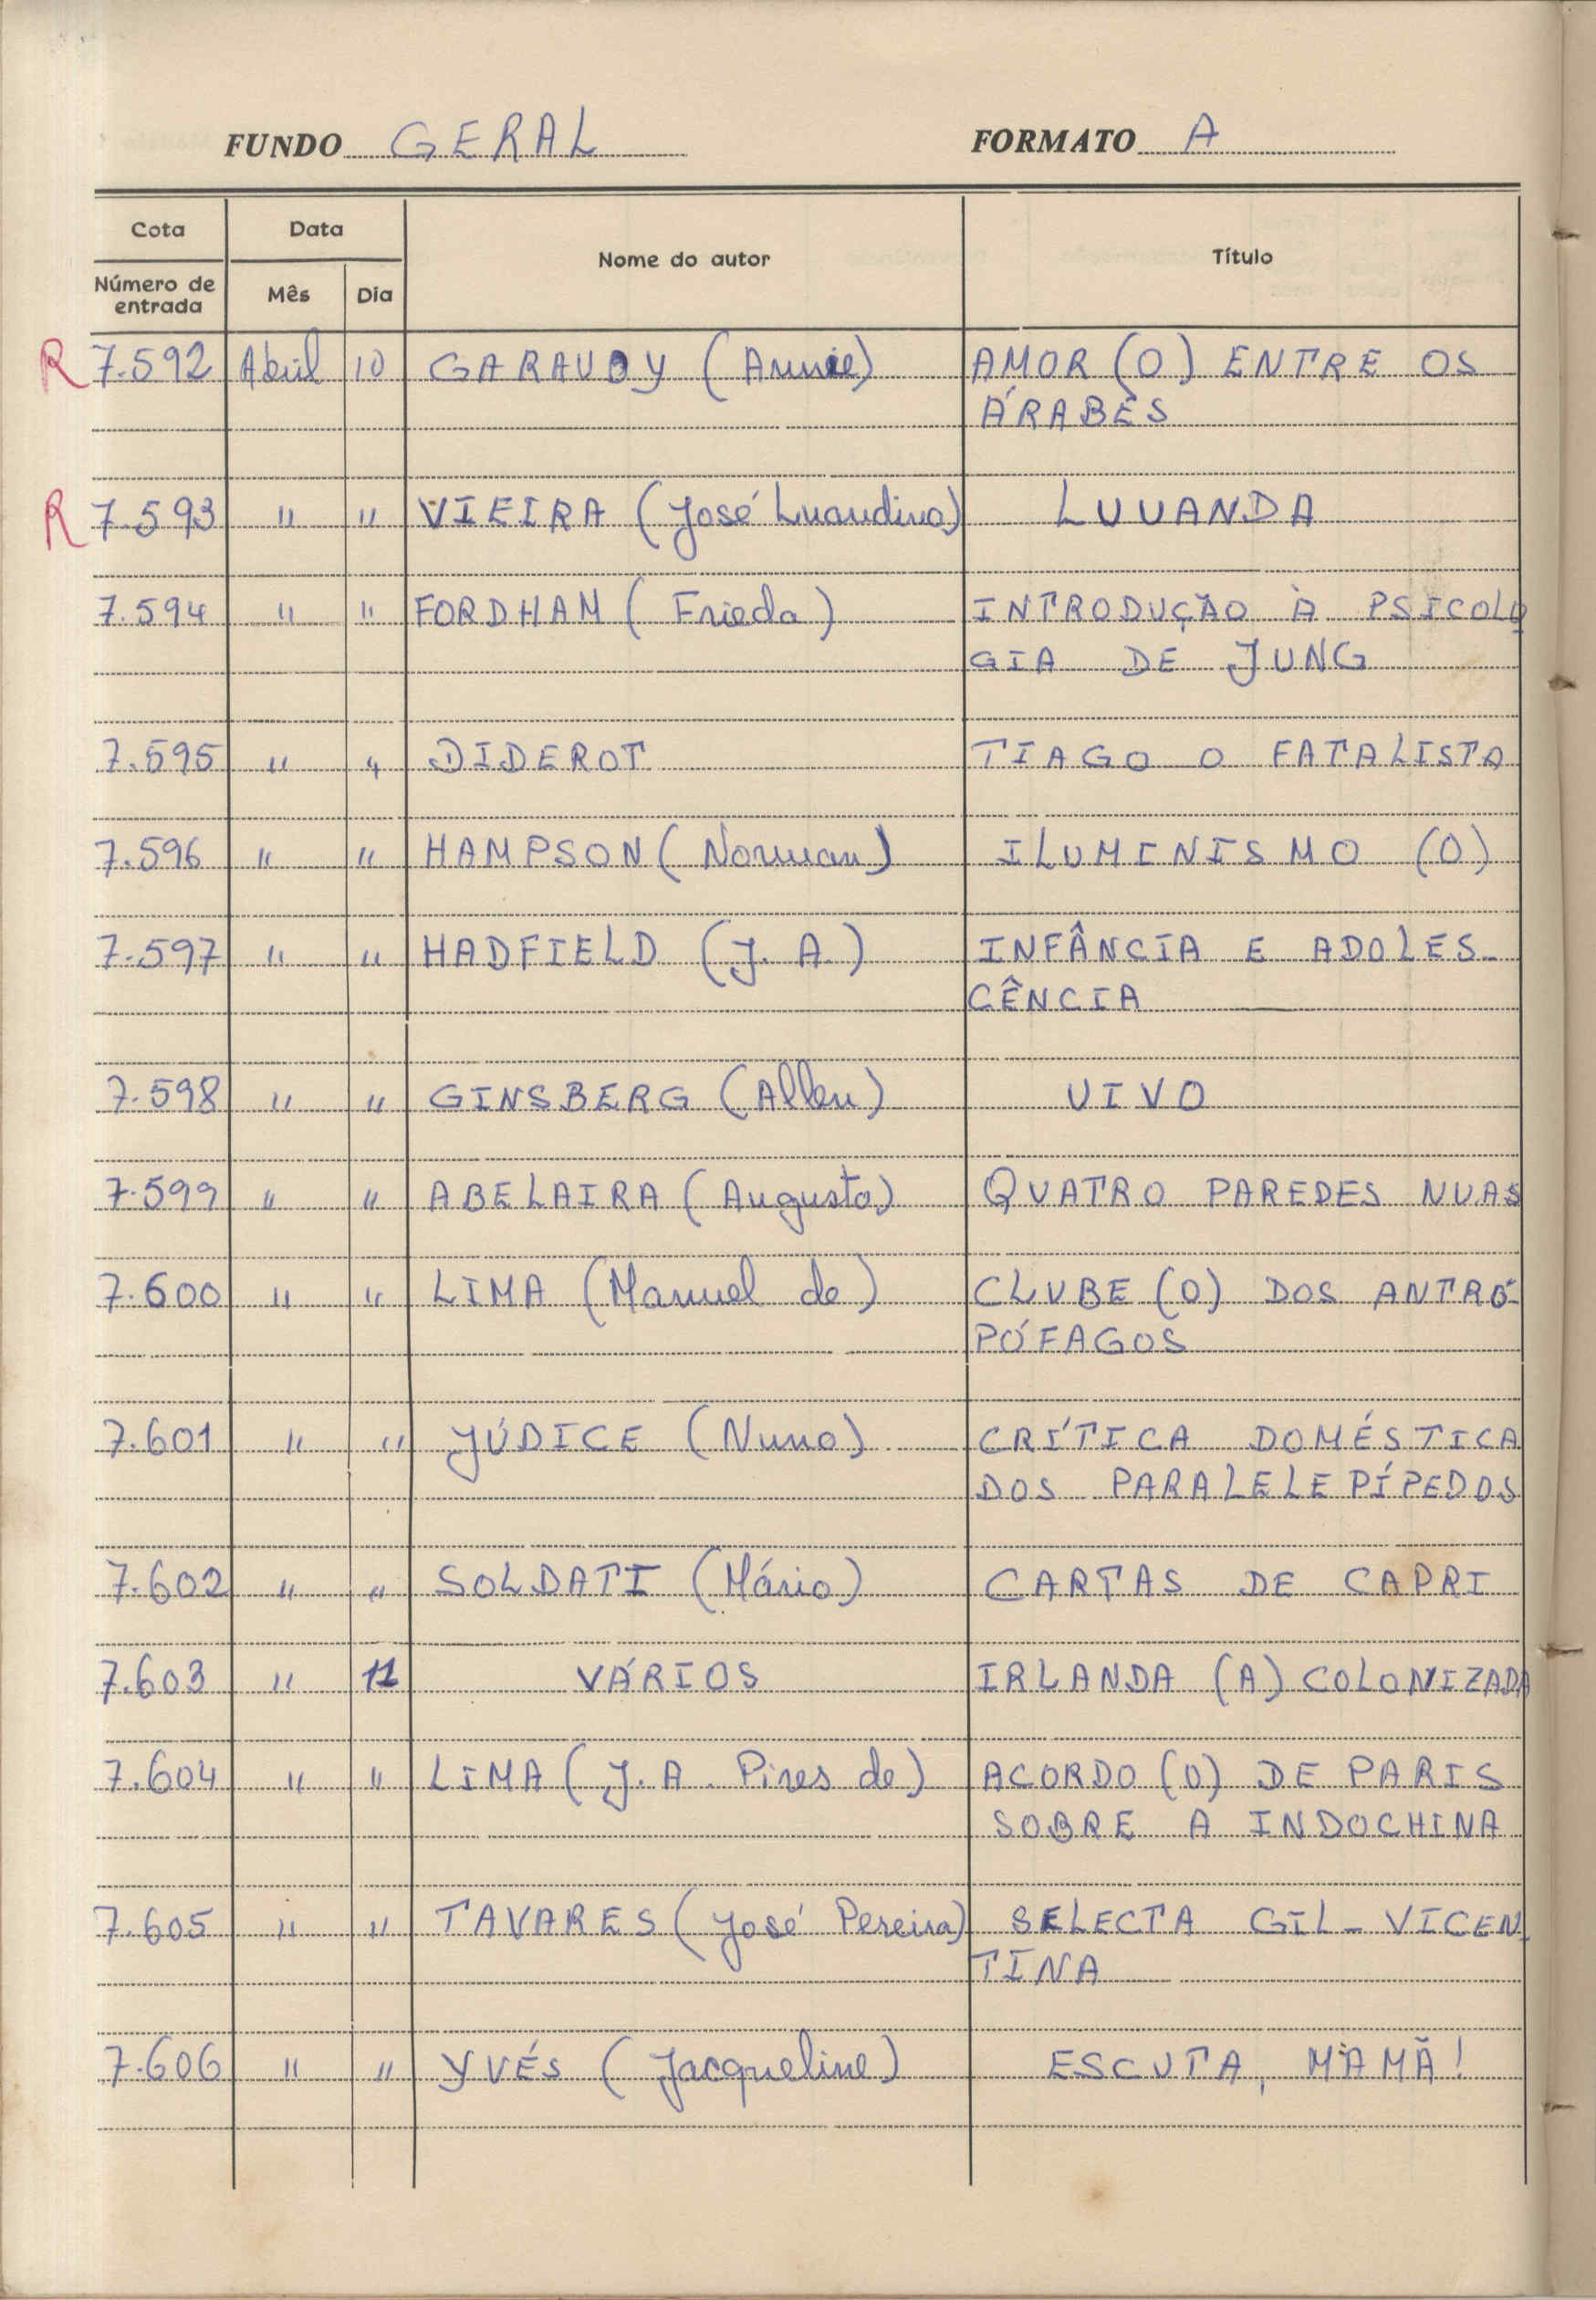 FUNDO GERAL FORMATO A
Cota Data Nome do autor Título
Número de entrada Mês Dia
R 7.592 Abril 10 GARAUDY (Annie) AMOR (O) ENTRE OS
ÁRABES
R 7.593 " " VIEIRA (José Luandino) LUUANDA
7.594 " " FORDHAM (Frieda) INTRODUÇÃO À PSICOLO
GIA DE JUNG
7.595 " " DIDEROT TIAGO O FATALISTA
7.596 " " HAMPSON (Norman) ILUMINISMO (O)
7.597 " " HADFIELD (J. A.) INFÂNCIA E ADOLES-
CÊNCIA
7.598 " " GINSBERG (Allen) UIVO
7.599 " " ABELAIRA (Augusto) QUATRO PAREDES NUAS
7.600 " " LIMA (Manuel de) CLUBE (O) DOS ANTRO-
PÓFAGOS
7.601 " " JÚDICE (Nuno) CRÍTICA DOMÉSTICA
DOS PARALELEPÍPEDOS
7.602 " " SOLDATI (Mário) CARTAS DE CAPRI
7.603 " 11 VÁRIOS IRLANDA (A) COLONIZADA
7.604 " " LIMA (J. A. Pires de) ACORDO (O) DE PARIS
SOBRE A INDOCHINA
7.605 " " TAVARES (José Pereira) SELECTA GIL-VICEN
TINA
7.606 " " YVÉS (Jacqueline) ESCUTA, MAMÃ!